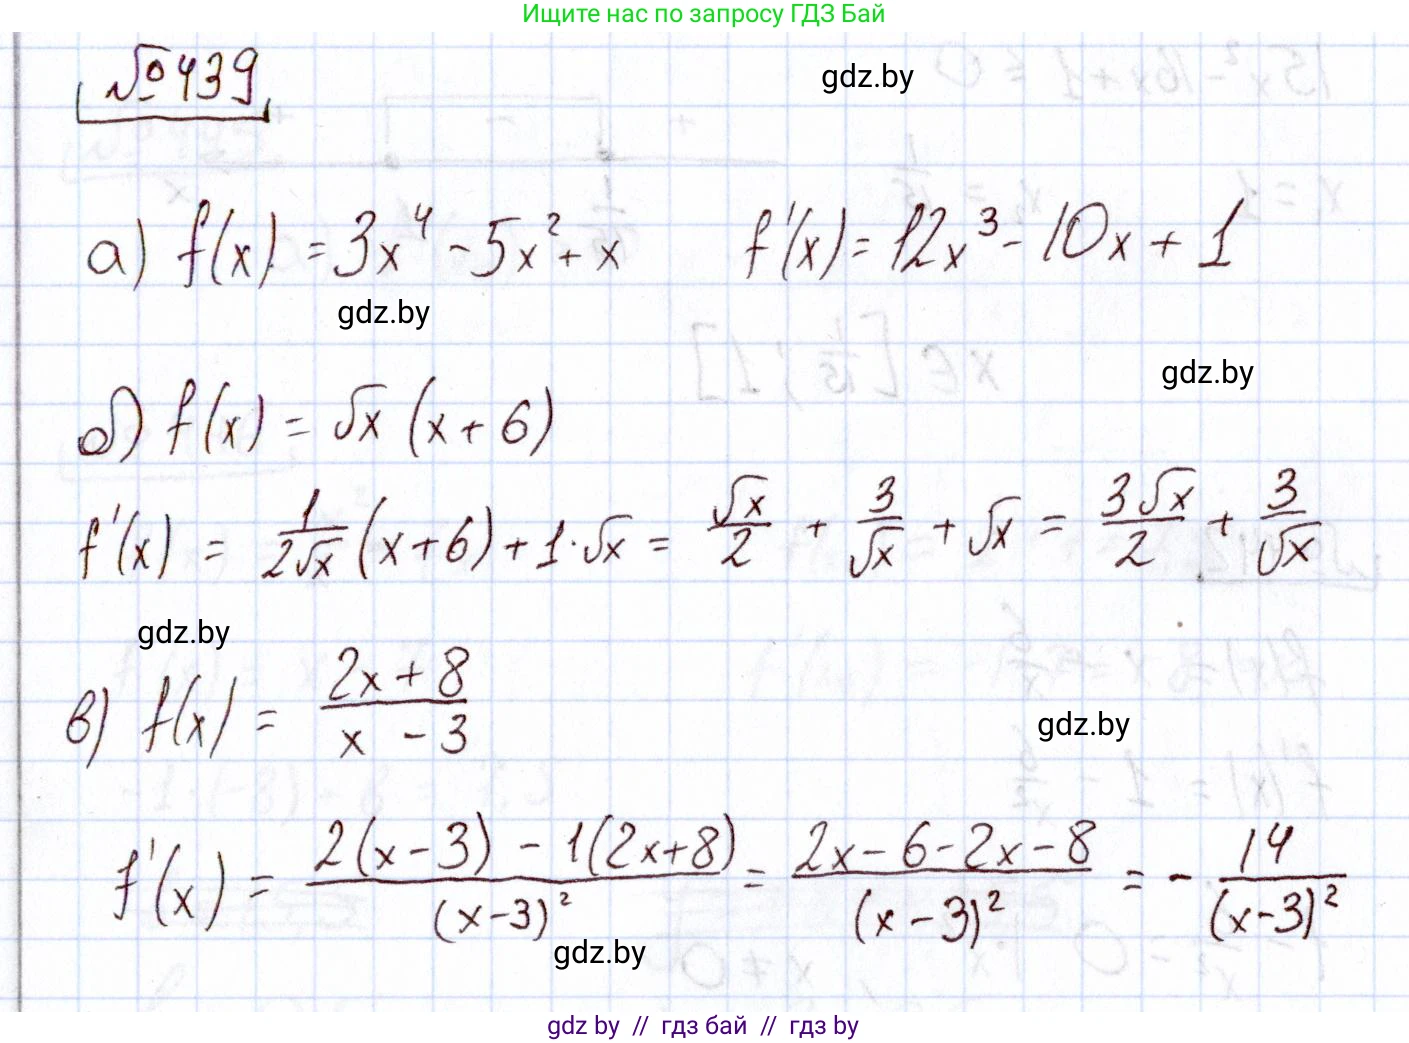 Ищите нас по запросу ГДЗ Бай
№439
gdz.by
а) f(x) = 3x⁴ - 5x² + x    f'(x) = 12x³ - 10x + 1
gdz.by
gdz.by
б) f(x) = √x (x + 6)
f'(x) = 1/(2√x) (x+6) + 1·√x = √x/2 + 3/√x + √x = 3√x/2 + 3/√x
gdz.by
в) f(x) = (2x + 8)/(x - 3)
gdz.by
f'(x) = (2(x-3) - 1(2x+8))/(x-3)² = (2x - 6 - 2x - 8)/(x-3)² = - 14/(x-3)²
gdz.by
gdz by // гдз бай // гдз by